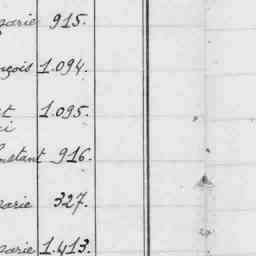 marie 915.
nçois 1.094.
t 1.095.
i
nstant 916.
marie 327.
marie 1.413.